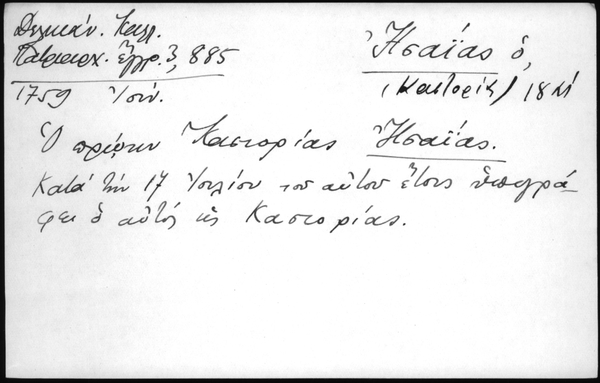 Δελικάν. Καλ.
Πατριαρχ. Ἔγγρ. 3, 885
1759 Ἰουν.
Ἠσαΐας ὁ,
(Καστορίας) 18
Ὁ πρῴην Καστορίας Ἠσαΐας.
Κατά τήν 17 Ἰουλίου τοῦ αὐτοῦ ἔτους ὑπογρά-
φει ὁ αὐτός ὡς Καστορίας.